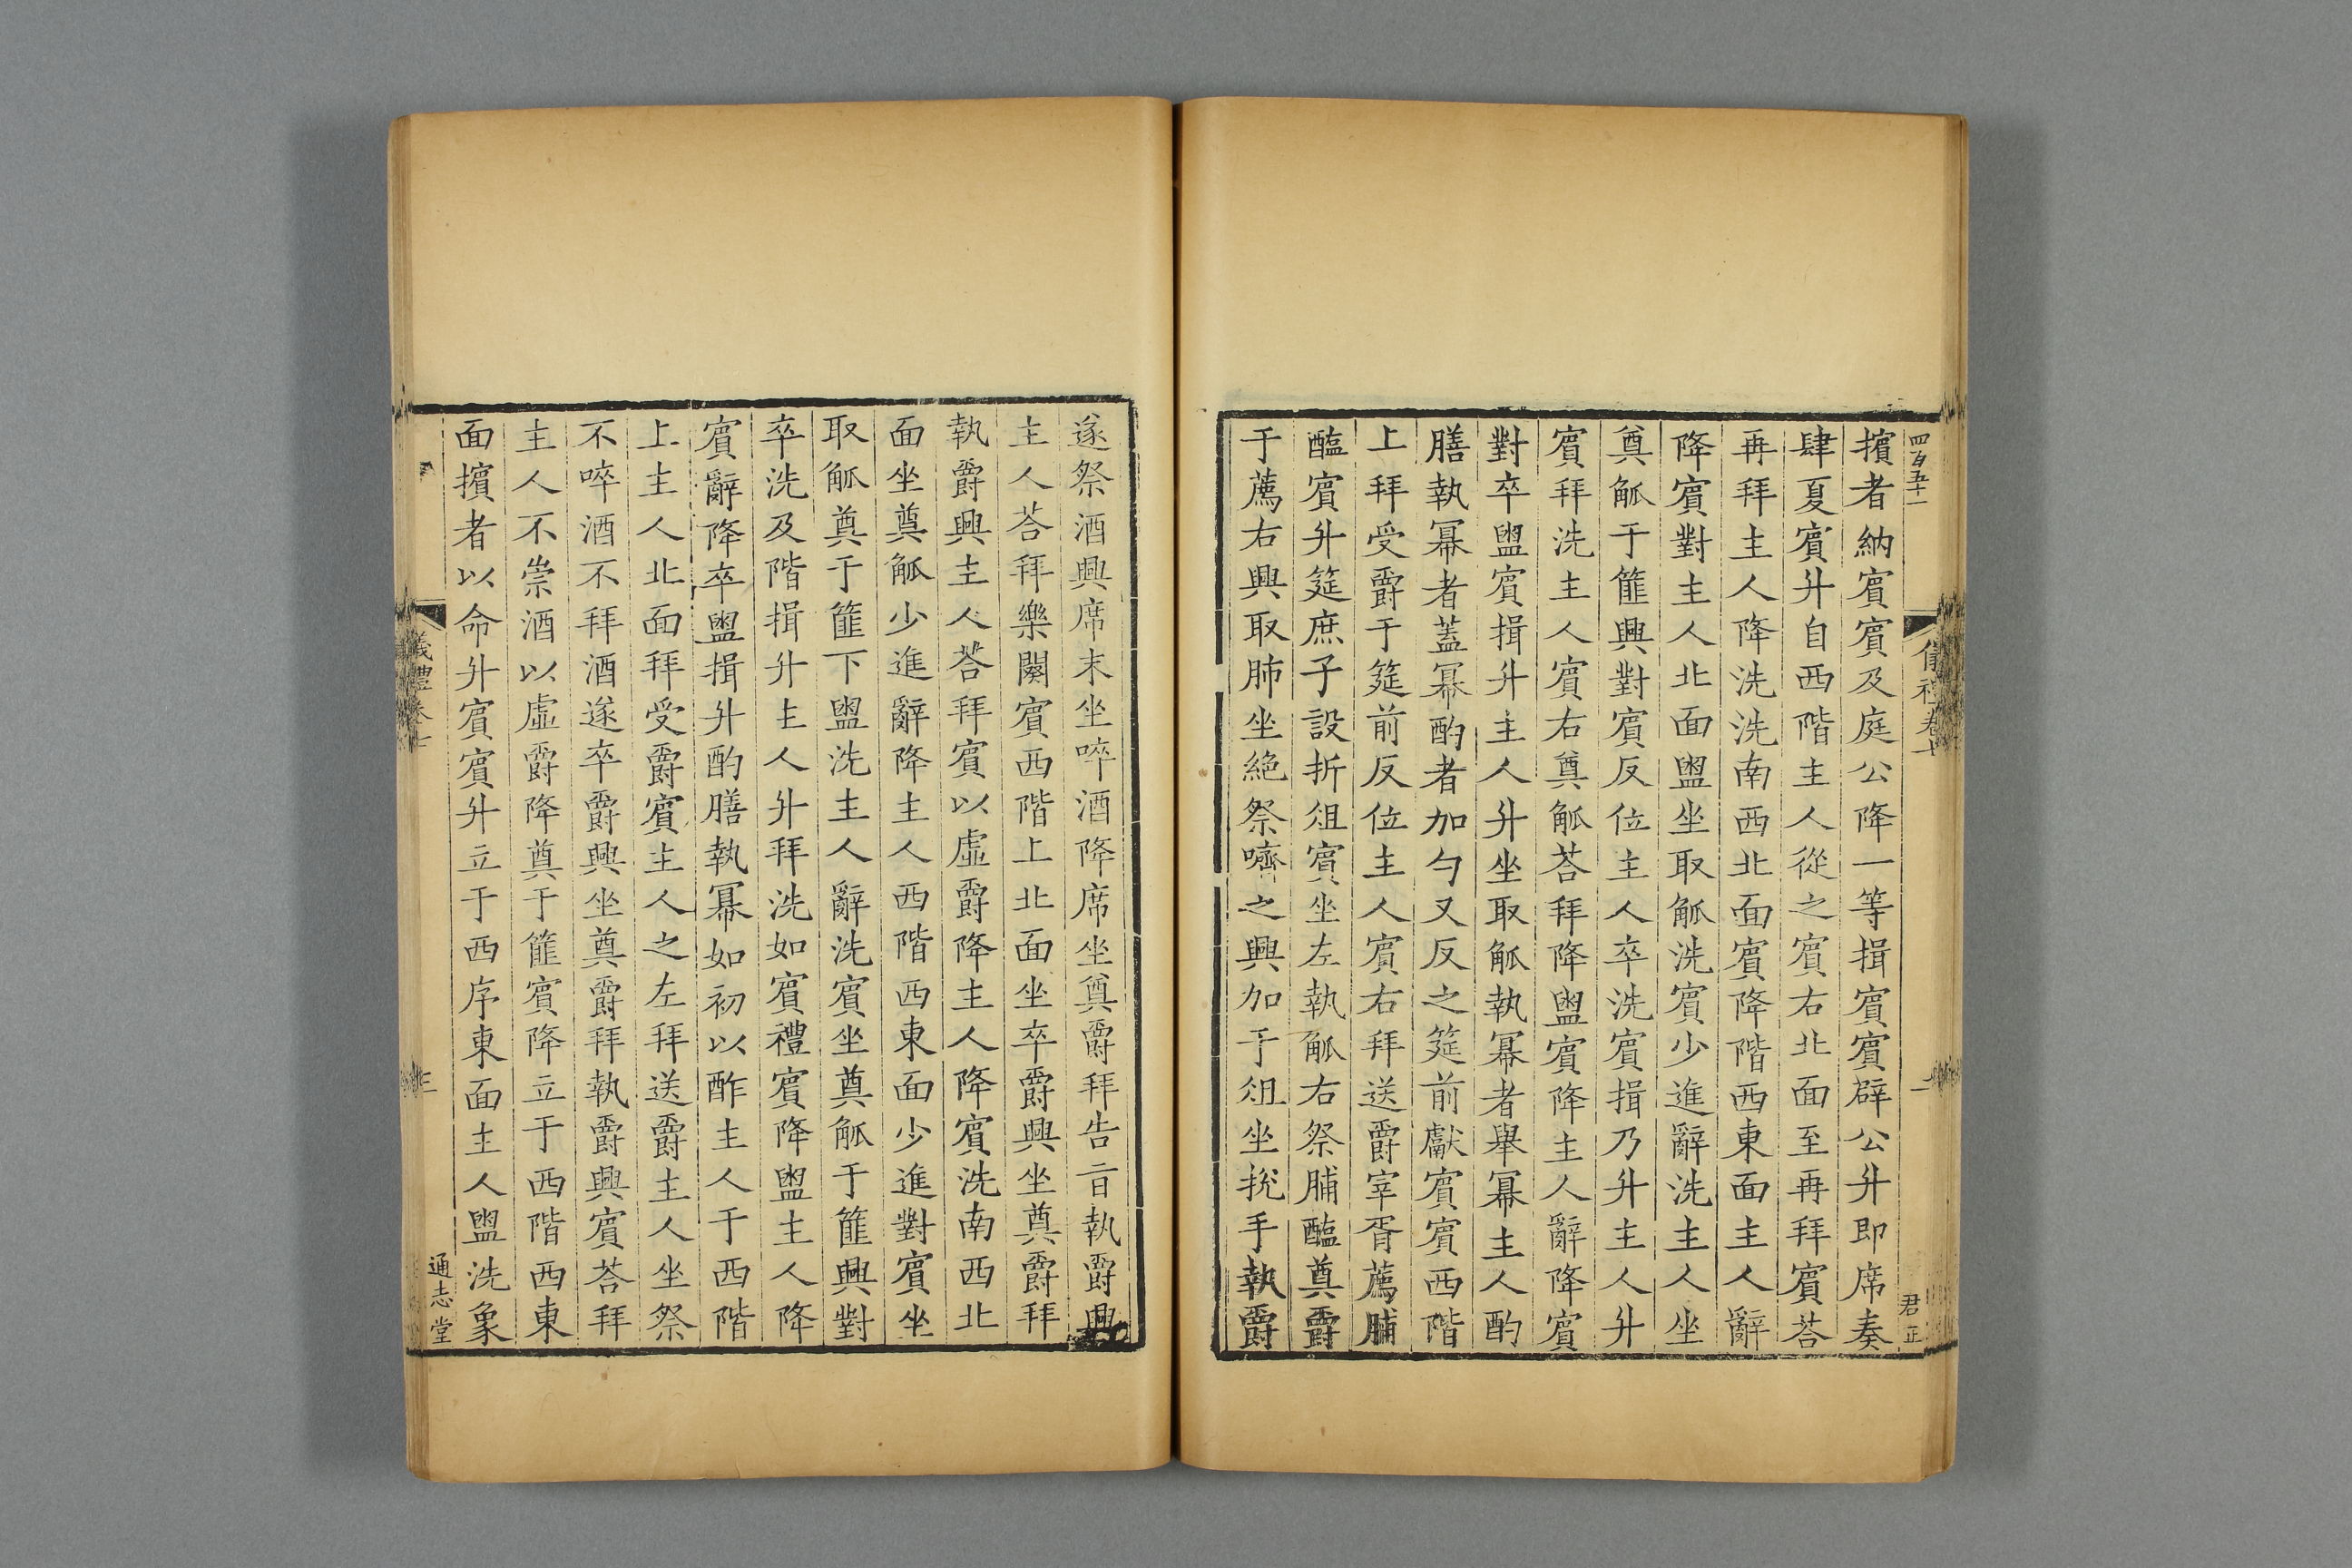 四百五十一
儀禮卷七
一
君正
擯者納賔賔及庭公降一等揖賔賔辟公升即席奏
肆夏賔升自西階主人從之賔右北面至再拜賔荅
再拜主人降洗洗南西北面賔降階西東面主人辭
降賔對主人北面盥坐取觚洗賔少進辭洗主人坐
奠觚于篚興對賔反位主人卒洗賔揖乃升主人升
賔拜洗主人賔右奠觚荅拜降盥賔降主人辭降賔
對卒盥賔揖升主人升坐取觚執冪者舉冪主人酌
膳執冪者蓋冪酌者加勺又反之筵前獻賔賔西階
上拜受爵于筵前反位主人賔右拜送爵宰胥薦脯
醢賔升筵庶子設折俎賔坐左執觚右祭脯醢奠爵
于薦右興取肺坐絶祭嚌之興加于俎坐挩手執爵
遂祭酒興席末坐啐酒降席坐奠爵拜告㫖執爵興
主人荅拜樂闋賔西階上北面坐卒爵興坐奠爵拜
執爵興主人荅拜賔以虛爵降主人降賔洗南西北
面坐奠觚少進辭降主人西階西東面少進對賔坐
取觚奠于篚下盥洗主人辭洗賔坐奠觚于篚興對
卒洗及階揖升主人升拜洗如賔禮賔降盥主人降
賔辭降卒盥揖升酌膳執冪如初以酢主人于西階
上主人北面拜受爵賔主人之左拜送爵主人坐祭
不啐酒不拜酒遂卒爵興坐奠爵拜執爵興賔荅拜
主人不崇酒以虛爵降奠于篚賔降立于西階西東
面擯者以命升賔賔升立于西序東面主人盥洗象
儀禮卷七
通志堂